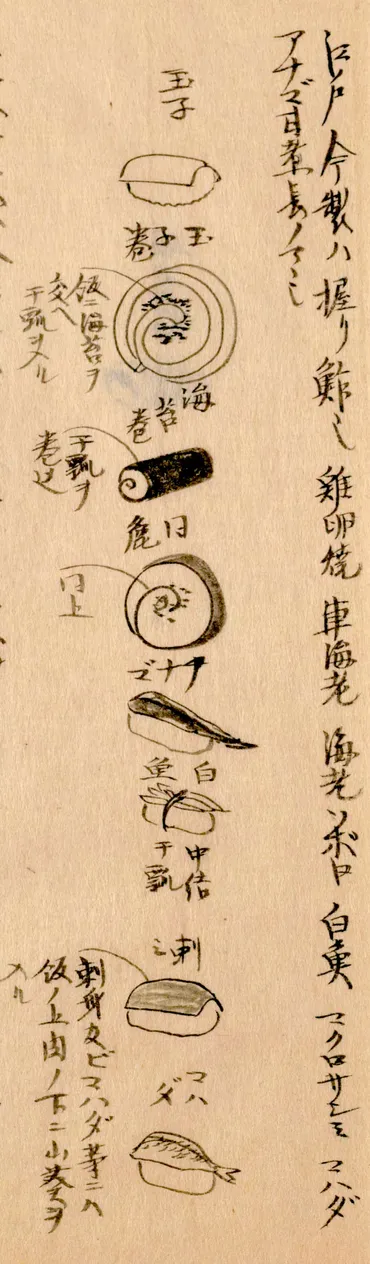 江戸今製ハ握リ鮓也 雞卵焼 車海老 海老ソボロ 白魚 マクロサシミ コハダ
アナゴ甘煮長ノマヽ也
玉子
玉子巻
飯ニ海苔ヲ
交ヘ
干瓢ヲ入ル
海苔巻
干瓢ヲ
巻込
同
同上
アナゴ
白魚
中結
干瓢
刺ミ
刺身及ビコハダ等ニハ
飯ノ上肉ノ下ニ山葵ヲ
入ル
コハダ